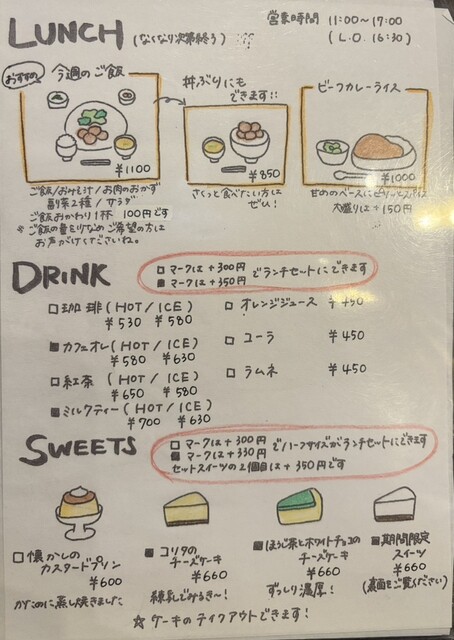 LUNCH (なくなり次第終う)
営業時間 11:00~17:00
(L.O. 16:30)
おすすめ 今週のご飯
¥1100
ご飯/おみそ汁/お肉のおかず
副菜2種/サラダ
ご飯おかわり1杯 100円です
※ご飯の量少なめご希望の方は
お声がけくださいね。
丼ぶりにも
できます!!
¥850
さくっと食べたい方は
ぜひ!
ビーフカレーライス
¥1000
甘めのベースにピリッとスパイス
大盛りは+150円
DRINK
□マークは+300円
■マークは+350円
でランチセットにできます
□珈琲(HOT/ICE)
¥530 ¥580
■カフェオレ(HOT/ICE)
¥580 ¥630
□紅茶 (HOT/ICE)
¥650 ¥580
■ミルクティー(HOT/ICE)
¥700 ¥630
□オレンジジュース ¥450
□コーラ ¥450
□ラムネ ¥450
SWEETS
□マークは+300円
■マークは+330円
でハーフサイズがランチセットにできます
セットスイーツの2個目は+350円です
□懐かしの
カスタードプリン
¥600
かために蒸し焼きました
■コリタの
チーズケーキ
¥660
練乳でみるき〜!
■ほうじ茶とホワイトチョコの
チーズケーキ
¥660
ずっしり濃厚!
■期間限定
スイーツ
¥660
(裏面をご覧ください)
☆ケーキのテイクアウトできます!